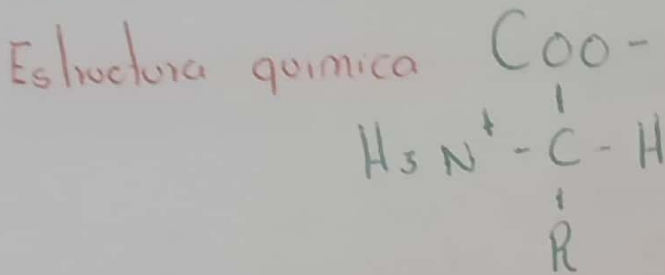 Estructura química COO-
H3N+ - C - H
R